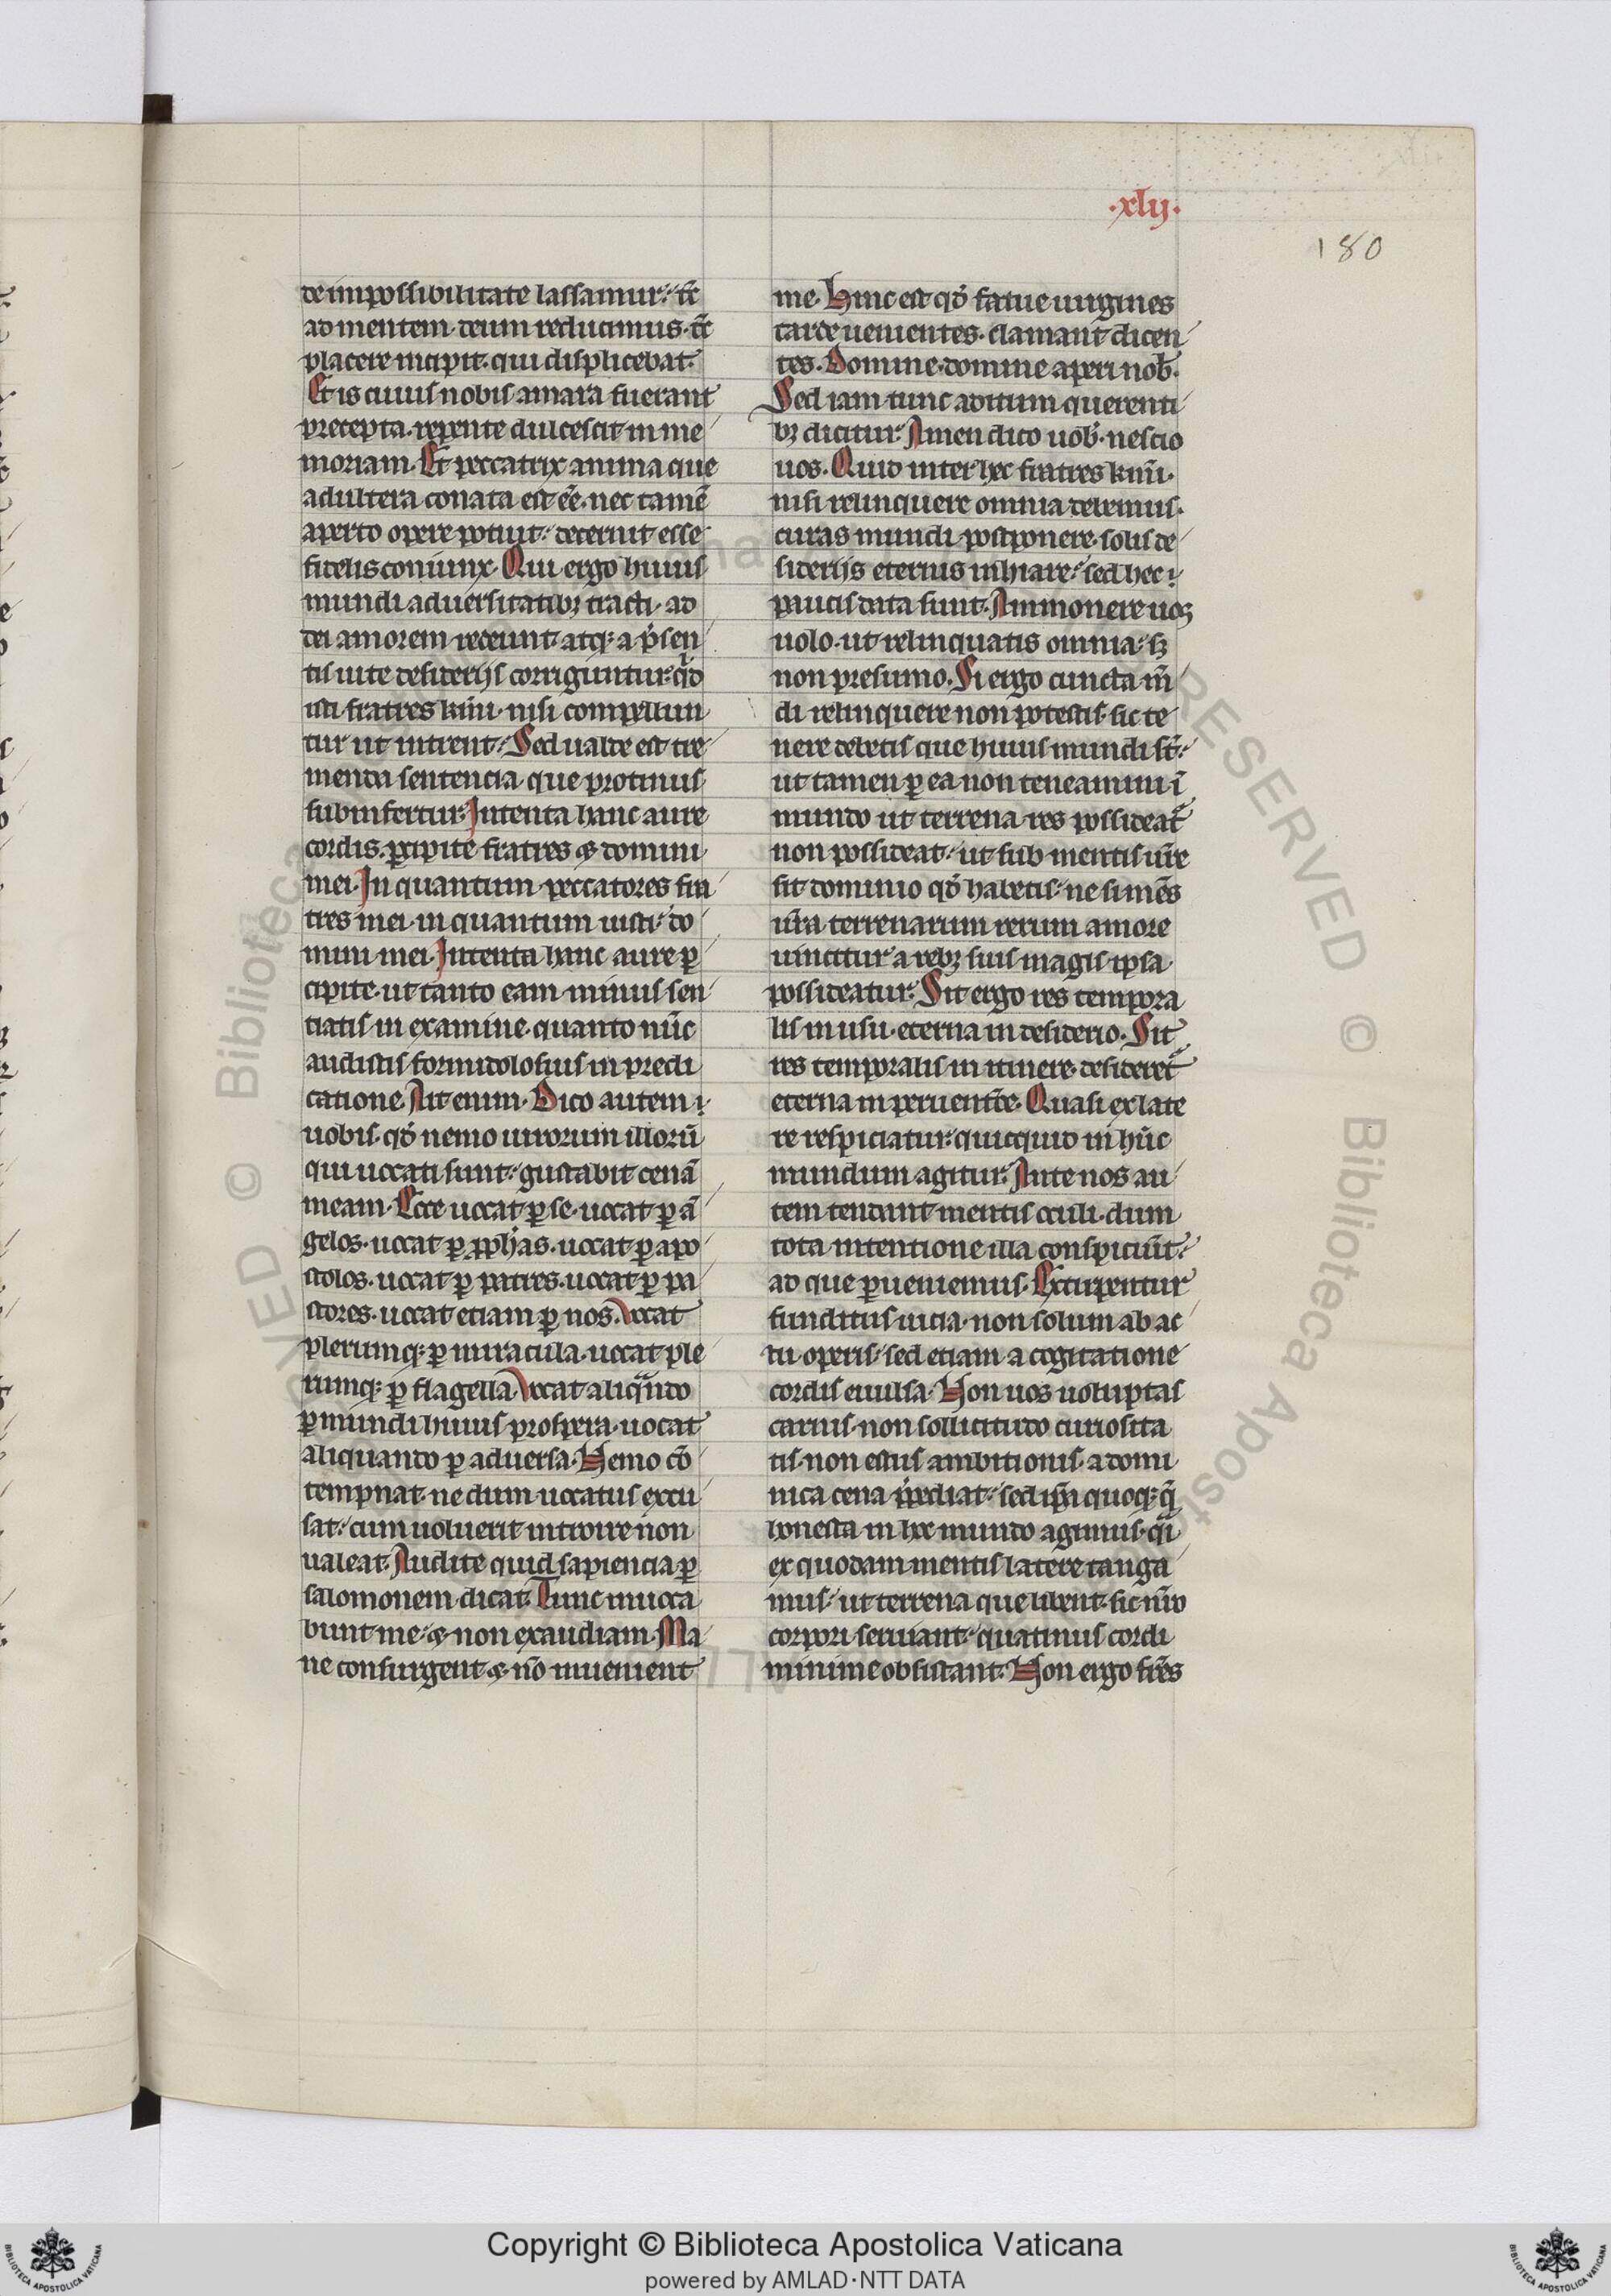 ·xlij·
180
de impossibilitate lassamur. tc̄
ad mentem deum reducimus. tc̄
placere incipit. qui displicebat.
Et is cuius nobis amara fuerant
precepta. repente dulcescit in me
moriam. Et peccatrix anima que
adultera conata est eē. nec tamē
aperto opere potuit. decernit esse
fidelis coniunx. Qui ergo huius
mundi aduersitatibꝫ tracti. ad
dei amorem redeunt. atqꝫ a p̄sen
tis uite desiderijs corriguntur. qͥd
isti fratres kmi. nisi compellun
tur ut intrent. Sed ualde est tre
menda sentencia. que protinus
subinfertur. Intenta hanc aure
cordis. ꝑcipite fratres ⁊ domini
mei. In quantum peccatores fra
tres mei. in quantum iusti. do
mini mei. Intenta hanc aure ꝑ
cipite. ut tanto eam minus sen
tiatis in examine. quanto nūc
audistis formidolosius in predi
catione. Ait enim. Dico autem
uobis. qď nemo uirorum illorū
qui uocati sunt. gustabit cenā
meam. Ecce uocat ꝑ se. uocat ꝑ ā
gelos. uocat ꝑ ꝓphas. uocat ꝑ apo
stolos. uocat ꝑ patres. uocat ꝑ pa
stores. uocat etiam ꝑ nos. Uocat
plerumqꝫ ꝑ miracula. uocat ple
rumqꝫ ꝑ flagella. Uocat aliqᵃndo
ꝑ mundi huius prospera. uocat
aliquando ꝑ aduersa. Nemo cō
tempnat. ne dum uocatus excu
sat. cum uoluerit introire non
ualeat. Audite quid sapiencia ꝑ
salomonem dicat. Tunc inuoca
bunt me. ⁊ non exaudiam. Ma
ne consurgent ⁊ nō inuenient
me. Hinc est qď fatue uirgines
tarde uenientes. clamant dicen
tes. Domine. domine aperi nob̄.
Sed iam tunc aditum querenti
bꝫ dicitur. Amen dico uob̄. nescio
uos. Quid inter hec fratres kmi.
nisi relinquere omnia debemus.
curas mundi postponere. solis de
siderijs eternis inhiare. sed hec
paucis data sunt. Ammonere uos
uolo. ut relinquatis omnia. sꝫ
non presumo. Si ergo cuncta mū
di relinquere non potestis. sic te
nere debetis que huius mundi st̄.
ut tamen ꝑ ea non teneamini ī
mundo ut terrena res possideat᷑
non possideat. ut sub mentis ur̄e
sit dominio qď habetis. ne si mēs
ur̄a terrenarum rerum amore
uincitur a rebꝫ suis magis ipsa
possideatur. Sit ergo res tempora
lis in usu. eterna in desiderio. Sit
res temporalis in itinere. desideret᷑
eterna in peruentōe. Quasi ex late
re respiciatur. quicquid in hūc
mundum agitur. Ante nos au
tem tendant mentis oculi. dum
tota intentione illa conspiciūt.
ad que ꝑueniemus. Extirpentur
funditus uicia. non solum ab ac
tu operis. sed etiam a cogitatione
cordis euulsa. Non uos uoluptas
carnis. non sollicitudo curiosita
tis. non estus ambitionis. a domi
nica cena p̄pediat. sed ip̄a quoqꝫ q̄
honesta in hoc mundo agimus. qͣi
ex quodam mentis latere tanga
mus. ut terrena que libent. sic nr̄o
corpori seruiant. quatinus cordi
minime obsistant. Non ergo fr̄es
Copyright © Biblioteca Apostolica Vaticana
powered by AMLAD·NTT DATA